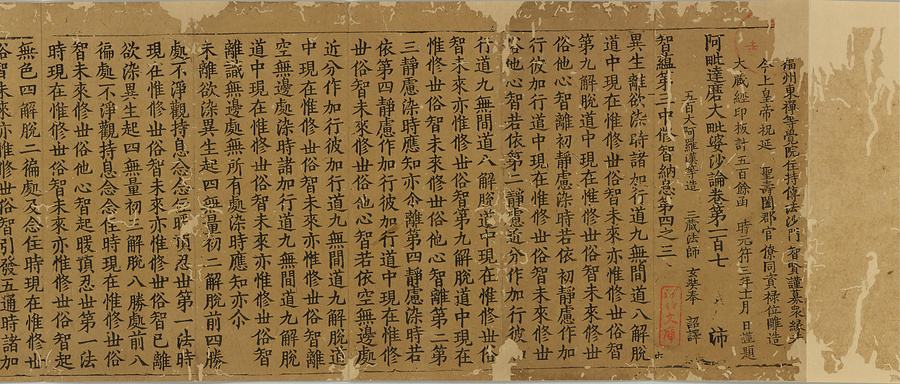 福州東禪等覺院住持傳法沙門 智賢謹募眾緣恭
今上皇帝祝延 聖壽闔郡官僚同資祿位雕造
大藏經印板計五百餘函 時元符三年十一月 日謹題
阿毗達磨大毗婆沙論卷第一百七 沛
五百大阿羅漢等造 三藏法師 玄奘奉 詔譯
智蘊第三中他智納息第四之三
異生離欲染時諸加行道九無間道八解脫
道中現在惟修世俗智未來亦惟修世俗智
第九解脫道中現在惟修世俗智未來修世
俗他心智離初靜慮染時若依初靜慮作加
行彼加行道中現在惟修世俗智未來修世
俗他心智若依第二靜慮近分作加行彼加
行道九無間道八解脫道中現在惟修世俗
智未來亦惟修世俗智第九解脫道中現在
惟修世俗智未來修世俗他心智離第二第
三靜慮染時應知亦尒離第四靜慮染時若
依第四靜慮作加行彼加行道中現在惟修
世俗智未來修世俗他心智若依空無邊處
近分作加行彼加行道九無間道九解脫道
中現在惟修世俗智未來亦惟修世俗智離
空無邊處染時諸加行道九無間道九解脫
道中現在惟修世俗智未來亦惟修世俗智
離識無邊處無所有處染時應知亦尒
未離欲染異生起四無量初二解脫前四勝
處不淨觀持息念念住煖頂忍世第一法時
現在惟修世俗智未來亦惟修世俗智已離
欲染異生起四無量初三解脫八勝處前八
徧處不淨觀持息念念住時現在惟修世俗
智未來修世俗他心智起煖頂忍世第一法
時現在惟修世俗智未來亦惟修世俗智起
無色四解脫二徧處及念住時現在惟修世
俗智未來亦惟修世俗智引發五通時諸加